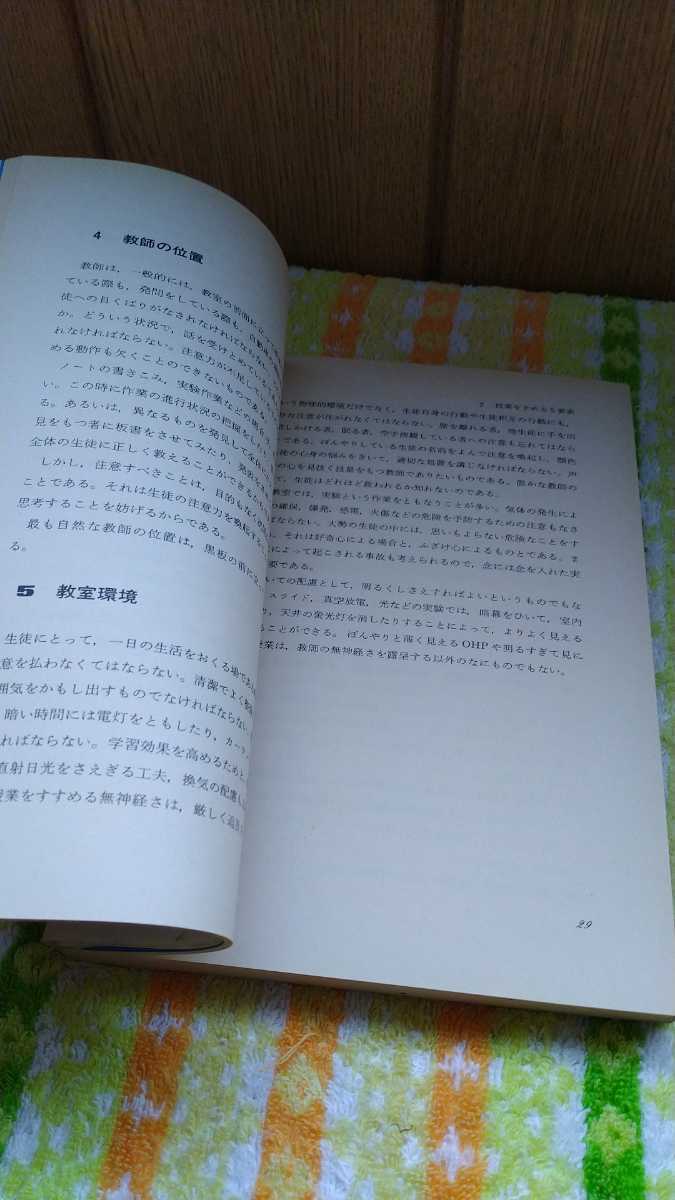 4 教師の位置
教師は,一般的には,教室の前面に
ている際も,発問をしている際も,
徒への目くばりがなされなければならない
か。どういう状況で,話を受けとめている
れなければならない。注意力が
める動作も欠くことのできないものである。
ノートの書きこみ,実験作業などの
い。この時に作業の進行状況の把握をし
る。あるいは,異なるものを発見して
見をもつ者に板書をさせてみたり,発表
全体の生徒に正しく教えることができるか
しかし,注意すべきことは,目的もなく
ことである。それは生徒の注意力を
思考することを妨げるからである。
最も自然な教師の位置は,黒板の前に
る。
5 教室環境
生徒にとって,一日の生活をおくる場であ
意を払わなくてはならない。清潔でよく
囲気をかもし出すものでなければならない
暗い時間には電灯をともしたり,カーテン
ればならない。学習効果を高めるため
直射日光をさえぎる工夫,換気の配慮
授業をすすめる無神経さは,厳しく
2 授業をきめる5要素
いう物理的環境だけでなく,生徒自身の行動や生徒相互の行動にも,
な注意が注がれなくてはならない。席を離れる者,他生徒に手を出
しかける者,眠る者,空手傍観している者への注意も忘れてはなら
である。ぼんやりしている生徒の名前をよんで注意を喚起し,顔色
徒の心身の悩みをきいて,適切な処置を講じなければならない。声
の心を見抜く技量をもつ教師でありたいものである。豊かな教師の
て,生徒はどれほど救われるか知れないのである。
教室では,実験という作業をともなうことが多い。気体の発生によ
の確保,爆発,感電,火傷などの危険を予防するための注意もなさ
ばならない。大勢の生徒の中には,思いもよらない危険なことをす
,それは好奇心による場合と,ふざけ心によるものとである。ま
によって起こされる事故も考えられるので,念には念を入れた実
要である。
いての配慮として,明るくしさえすればよいというものでもな
スライド,真空放電,光などの実験では,暗幕をひいて,室内
り,天井の蛍光灯を消したりすることによって,よりよく見える
ることができる。ぼんやりと薄く見えるOHPや明るすぎて見に
授業は,教師の無神経さを露呈する以外のなにものでもない。
29